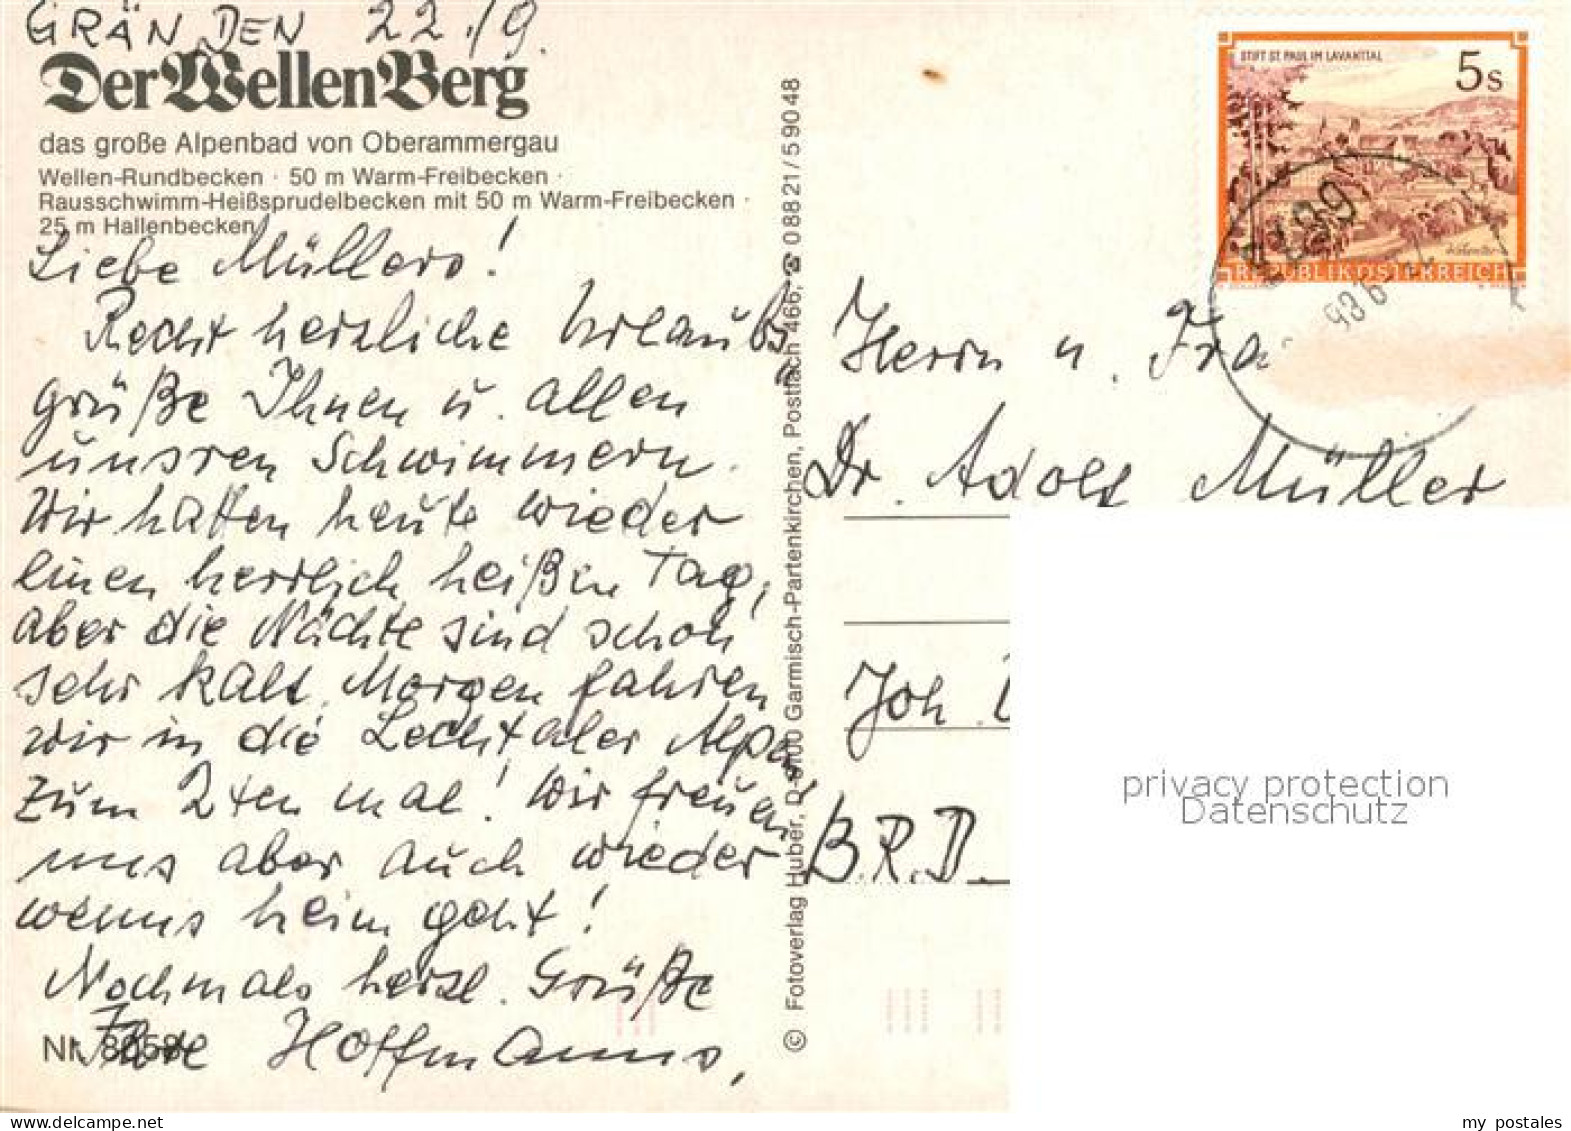 GRÄN DEN 22./9.
Der WellenBerg
das große Alpenbad von Oberammergau
Wellen-Rundbecken · 50 m Warm-Freibecken ·
Rausschwimm-Heißsprudelbecken mit 50 m Warm-Freibecken ·
25 m Hallenbecken
Liebe Müllers!
Recht herzliche Urlaubs
grüße Ihnen u. allen
unsren Schwimmern.
Wir hatten heute wieder
einen herrlich heißen Tag,
aber die Nächte sind schon
sehr kalt. Morgen fahren
wir in die Lechtaler Alpen
zum 2ten mal! Wir freuen
uns aber auch wieder
wenns heim geht!
Nochmals herzl. Grüße
Ihre Hoffmanns,
Nr. 8658
© Fotoverlag Huber, D-8100 Garmisch-Partenkirchen, Postfach 466, ☎ 08821/59048
STIFT ST. PAUL IM LAVANTTAL
5s
REPUBLIK ÖSTERREICH
Herrn u. Frau
Dr. Adolf Müller
Joh.
B.R.D.
privacy protection
Datenschutz
my postales